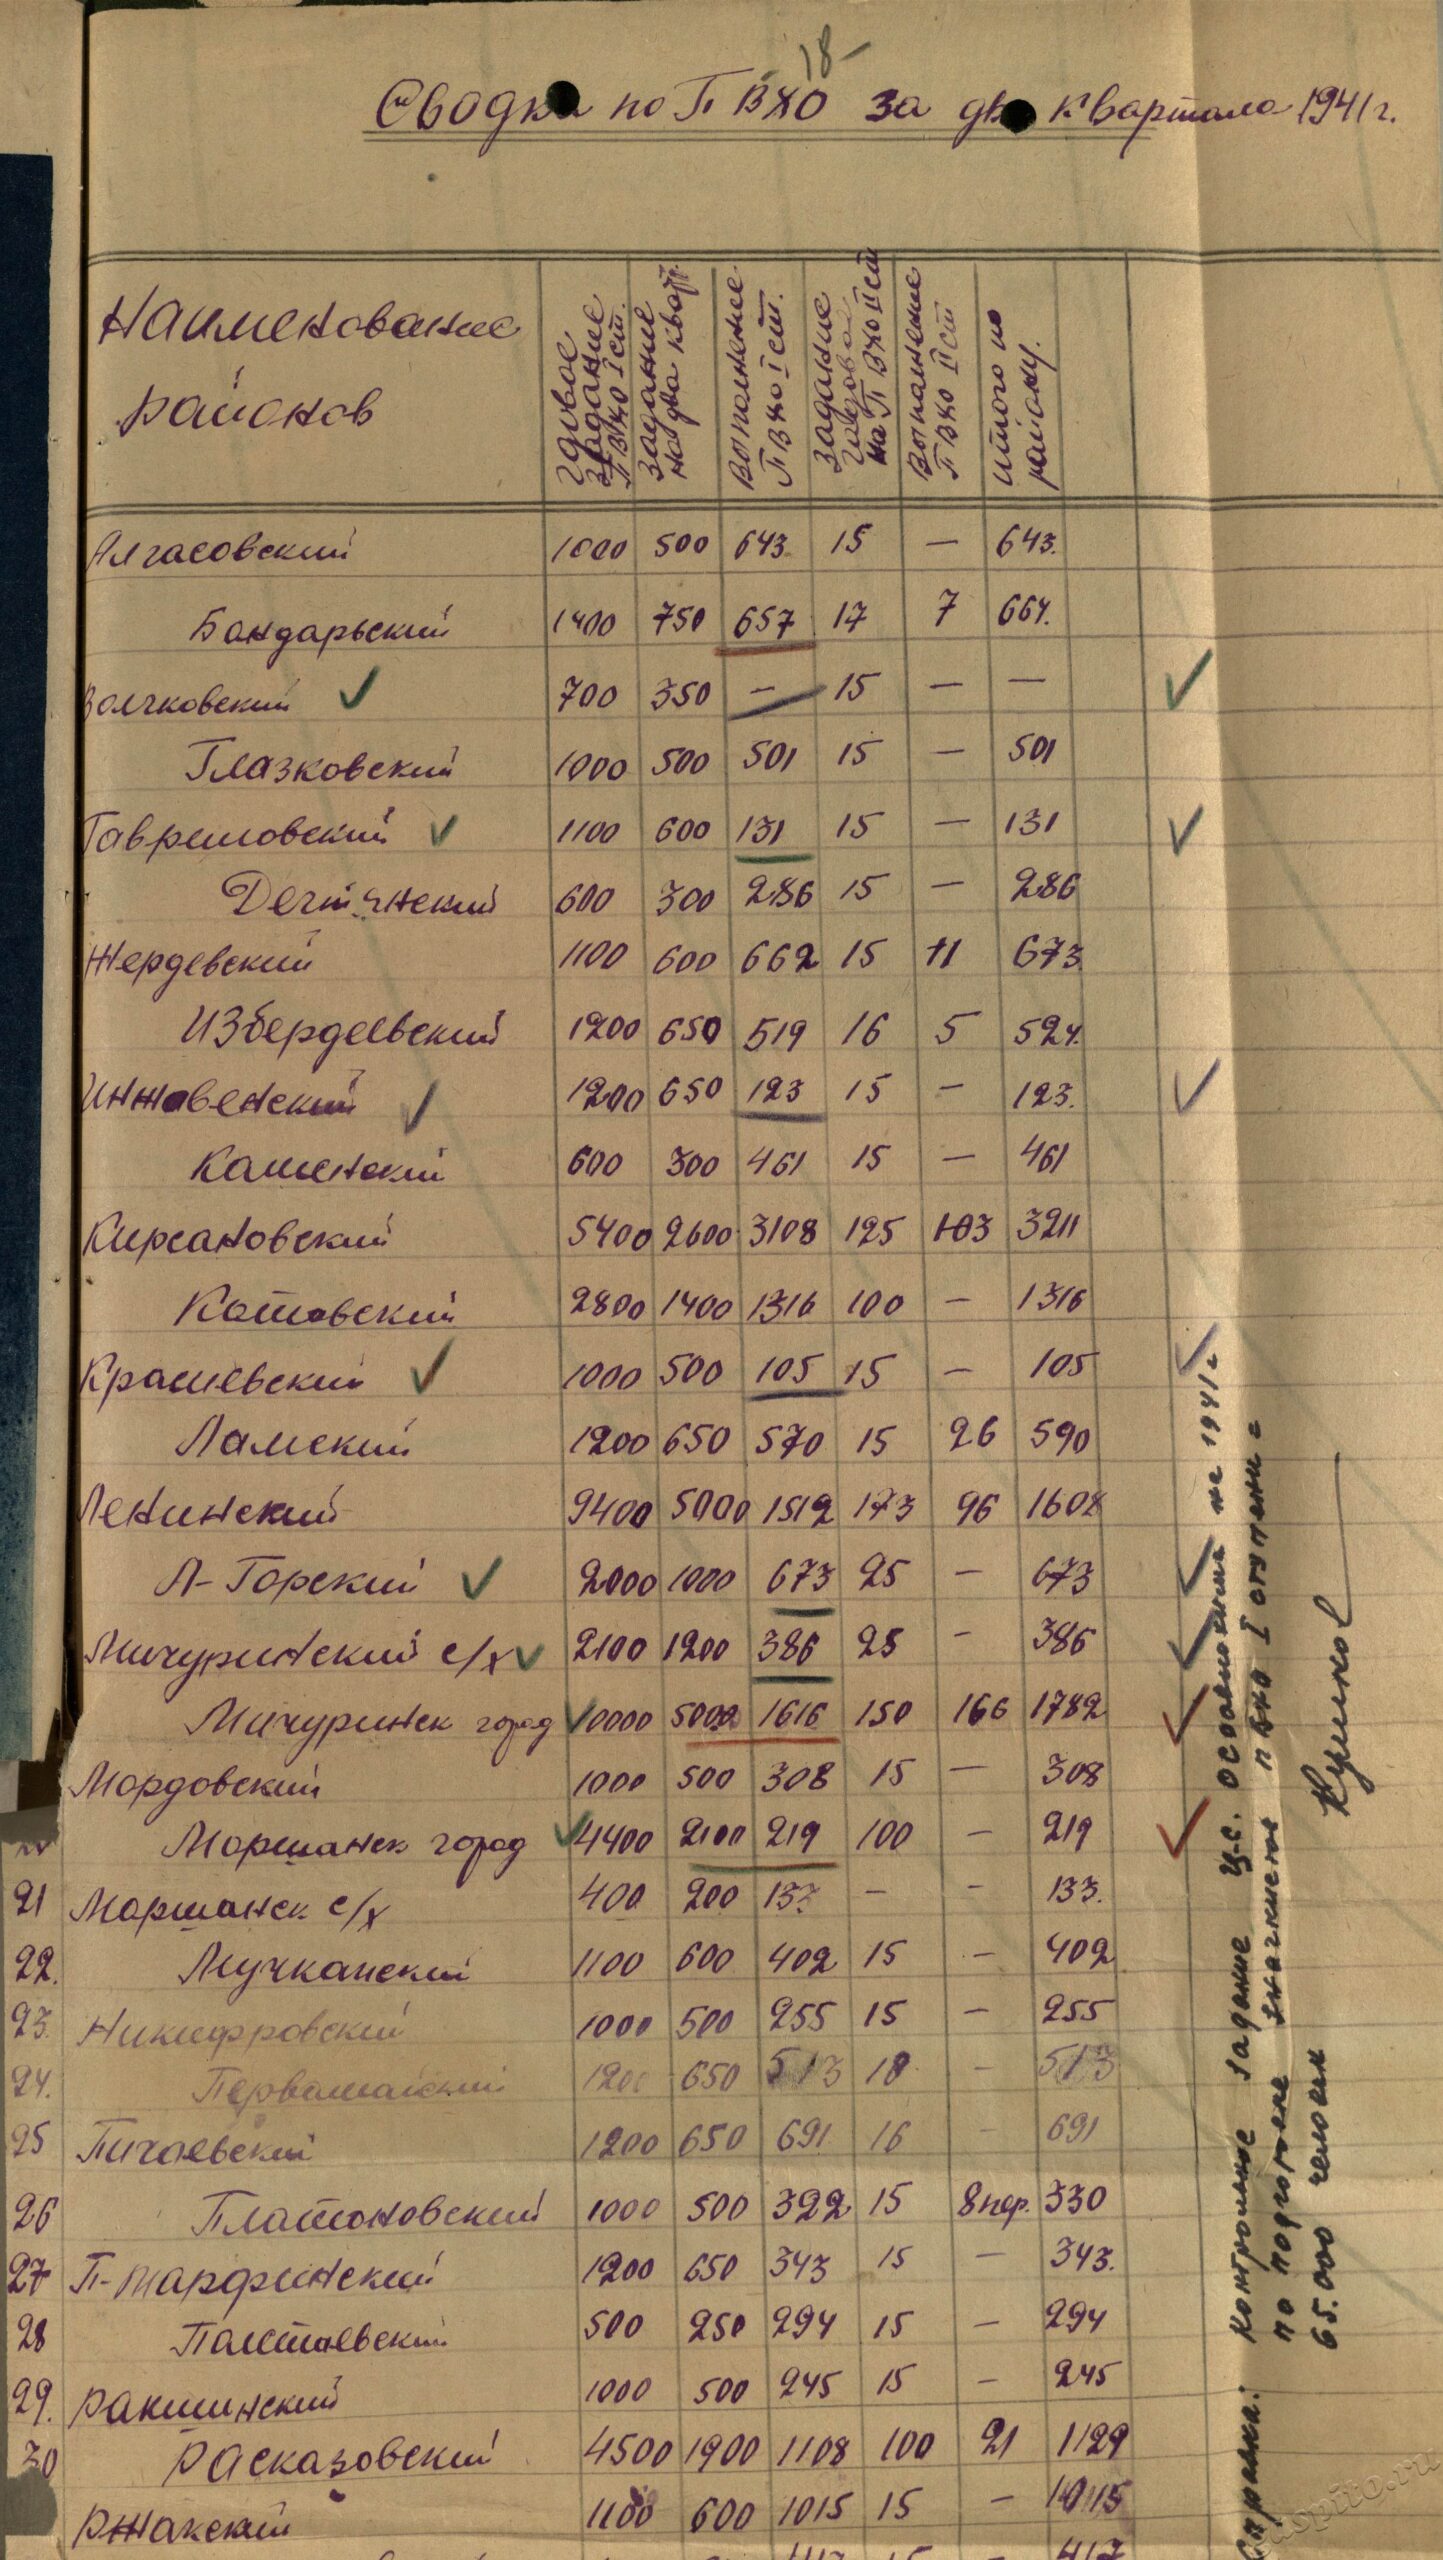 18-
Сводка по ПВХО за два квартала 1941 г.
Наименование районов
годовое задание ПВХО I ст.
задание на два кварт.
выполнение ПВХО I ст.
задание годовое на ПВХО II ст
выполнение ПВХО II ст
итого по району.
Алгасовский 1000 500 643 15 — 643.
Бандарьский 1400 750 657 17 7 664.
Волчковский ✓ 700 350 — 15 — — ✓
Глазковский 1000 500 501 15 — 501
Гавриловский ✓ 1100 600 131 15 — 131 ✓
Дегтянский 600 300 286 15 — 286
Жердевский 1100 600 662 15 11 673
Избердеевский 1200 650 519 16 5 524.
Инжавенский ✓ 1200 650 123 15 — 123. ✓
Каменский 600 300 461 15 — 461
Кирсановский 5400 2600 3108 125 103 3211
Котовский 2800 1400 1316 100 — 1316
Крашевский ✓ 1000 500 105 15 — 105 ✓
Ламский 1200 650 570 15 26 590
Ленинский 9400 5000 1512 173 96 1608
Л-Горский ✓ 2000 1000 673 25 — 673 ✓
Мичуринский с/х ✓ 2100 1200 386 25 — 386 ✓
Мичуринск город ✓ 10000 5000 1616 150 166 1782 ✓
Мордовский 1000 500 308 15 — 308
Моршанск город ✓ 4400 2100 219 100 — 219 ✓
21 Моршанск с/х 400 200 133 — — 133.
22. Мучкапский 1100 600 402 15 — 402
23. Никифровский 1000 500 255 15 — 255
24. Первомайский 1200 650 513 18 — 513
25 Пичаевский 1200 650 691 16 — 691
26 Платоновский 1000 500 322 15 8 пер. 330
27 П-Марфинский 1200 650 343 15 — 343.
28 Полетаевский 500 250 294 15 — 294
29. Ракшинский 1000 500 245 15 — 245
30 Расказовский 4500 1900 1108 100 21 1129
Ржакский 1100 600 1015 15 — 1015
417 15 — 417
Справка: Контрольное задание Ц.С. Осоавиахима на 1941 г
по подготовке значкистов ПВХО I ступени =
65.000 человек
gaspito.ru